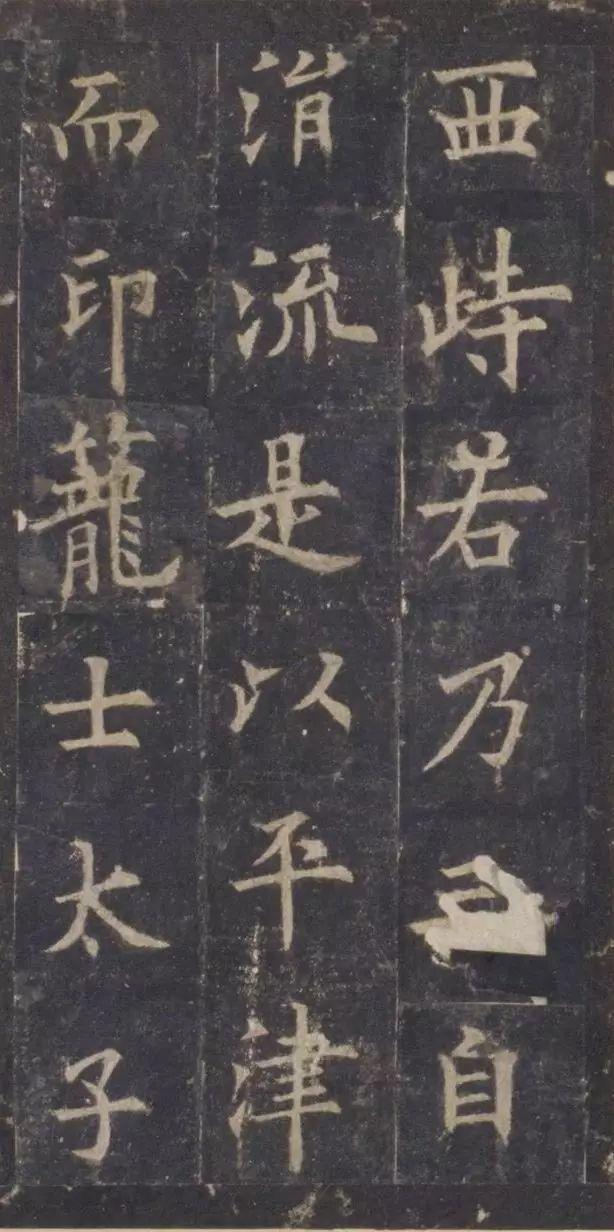 西峙若乃自
涓流是以平津
而印籠士太子